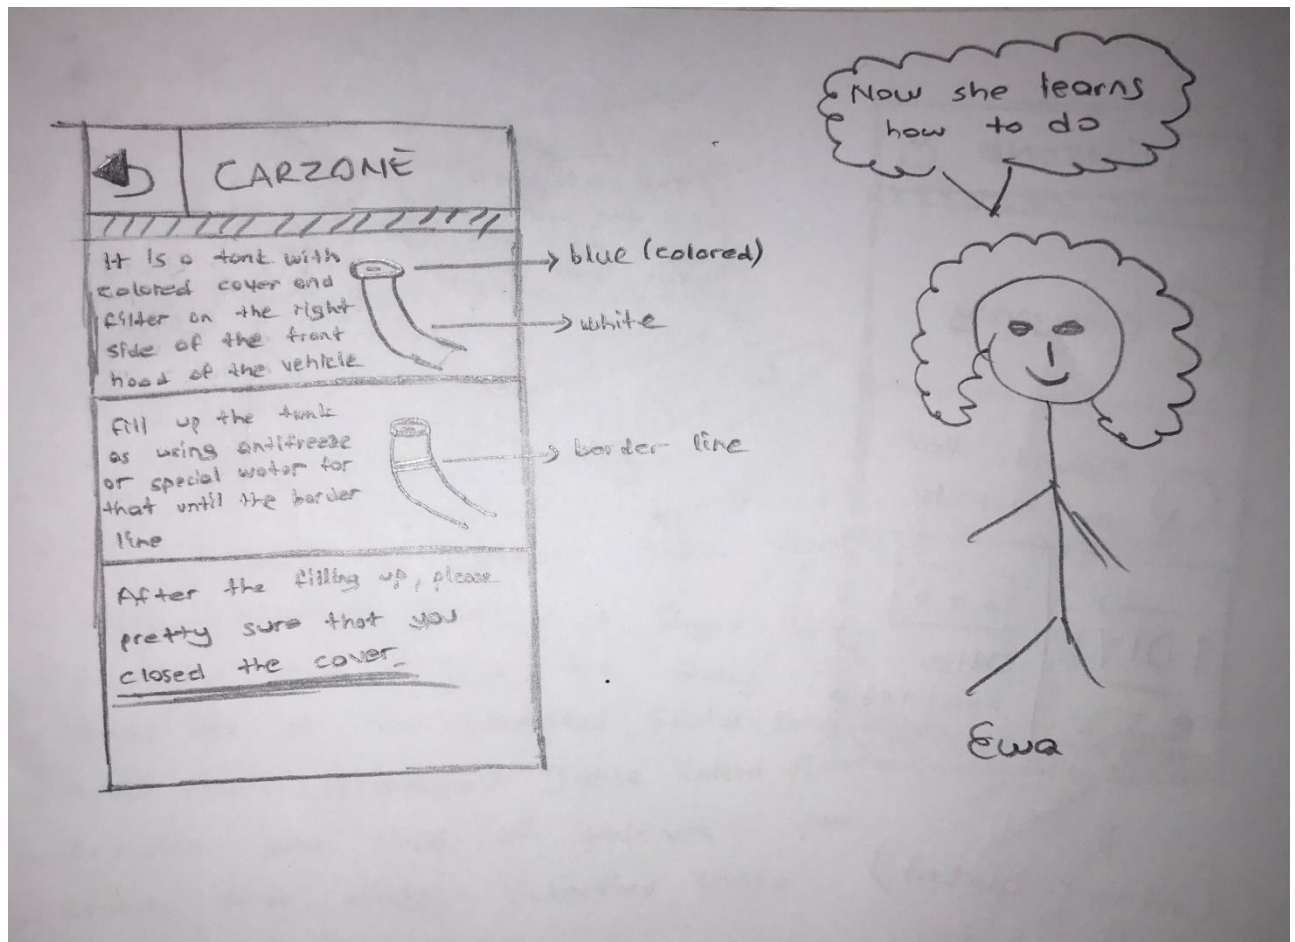 CARZONE
It is a tank with
colored cover and
filter on the right
side of the front
hood of the vehicle
blue (colored)
white
Fill up the tank
as using antifreeze
or special water for
that until the border
line
border line
After the filling up, please
pretty sure that you
closed the cover.
Now she learns
how to do
Ewa